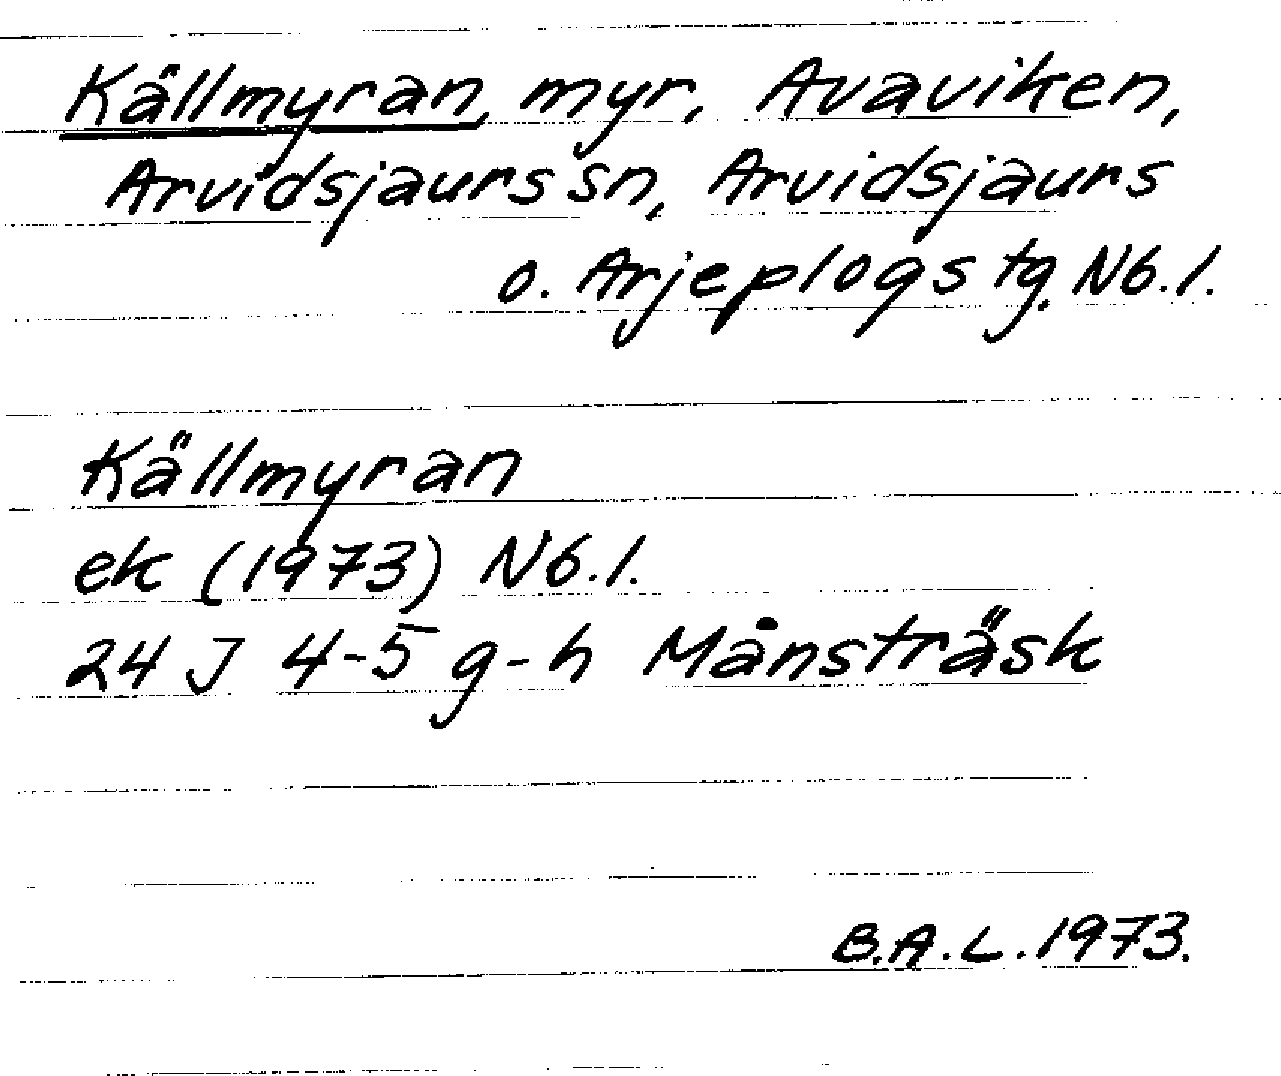 Källmyran, myr, Avaviken,
Arvidsjaurs sn, Arvidsjaurs
o. Arjeplogs tg. Nb.l.
Källmyran
ek (1973) Nb.l.
24 J 4-5 g-h Månsträsk
B.A.L. 1973.